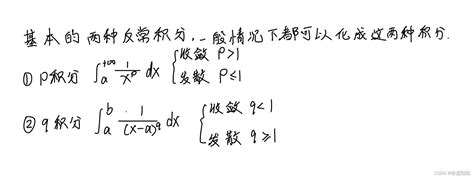 基本的两种反常积分,一般情况下都可以化成这两种积分.
① P积分 ∫_a^{+∞} 1/x^p dx { 收敛 P>1
发散 P≤1
② q积分 ∫_a^b 1/(x-a)^q dx { 收敛 q<1
发散 q≥1